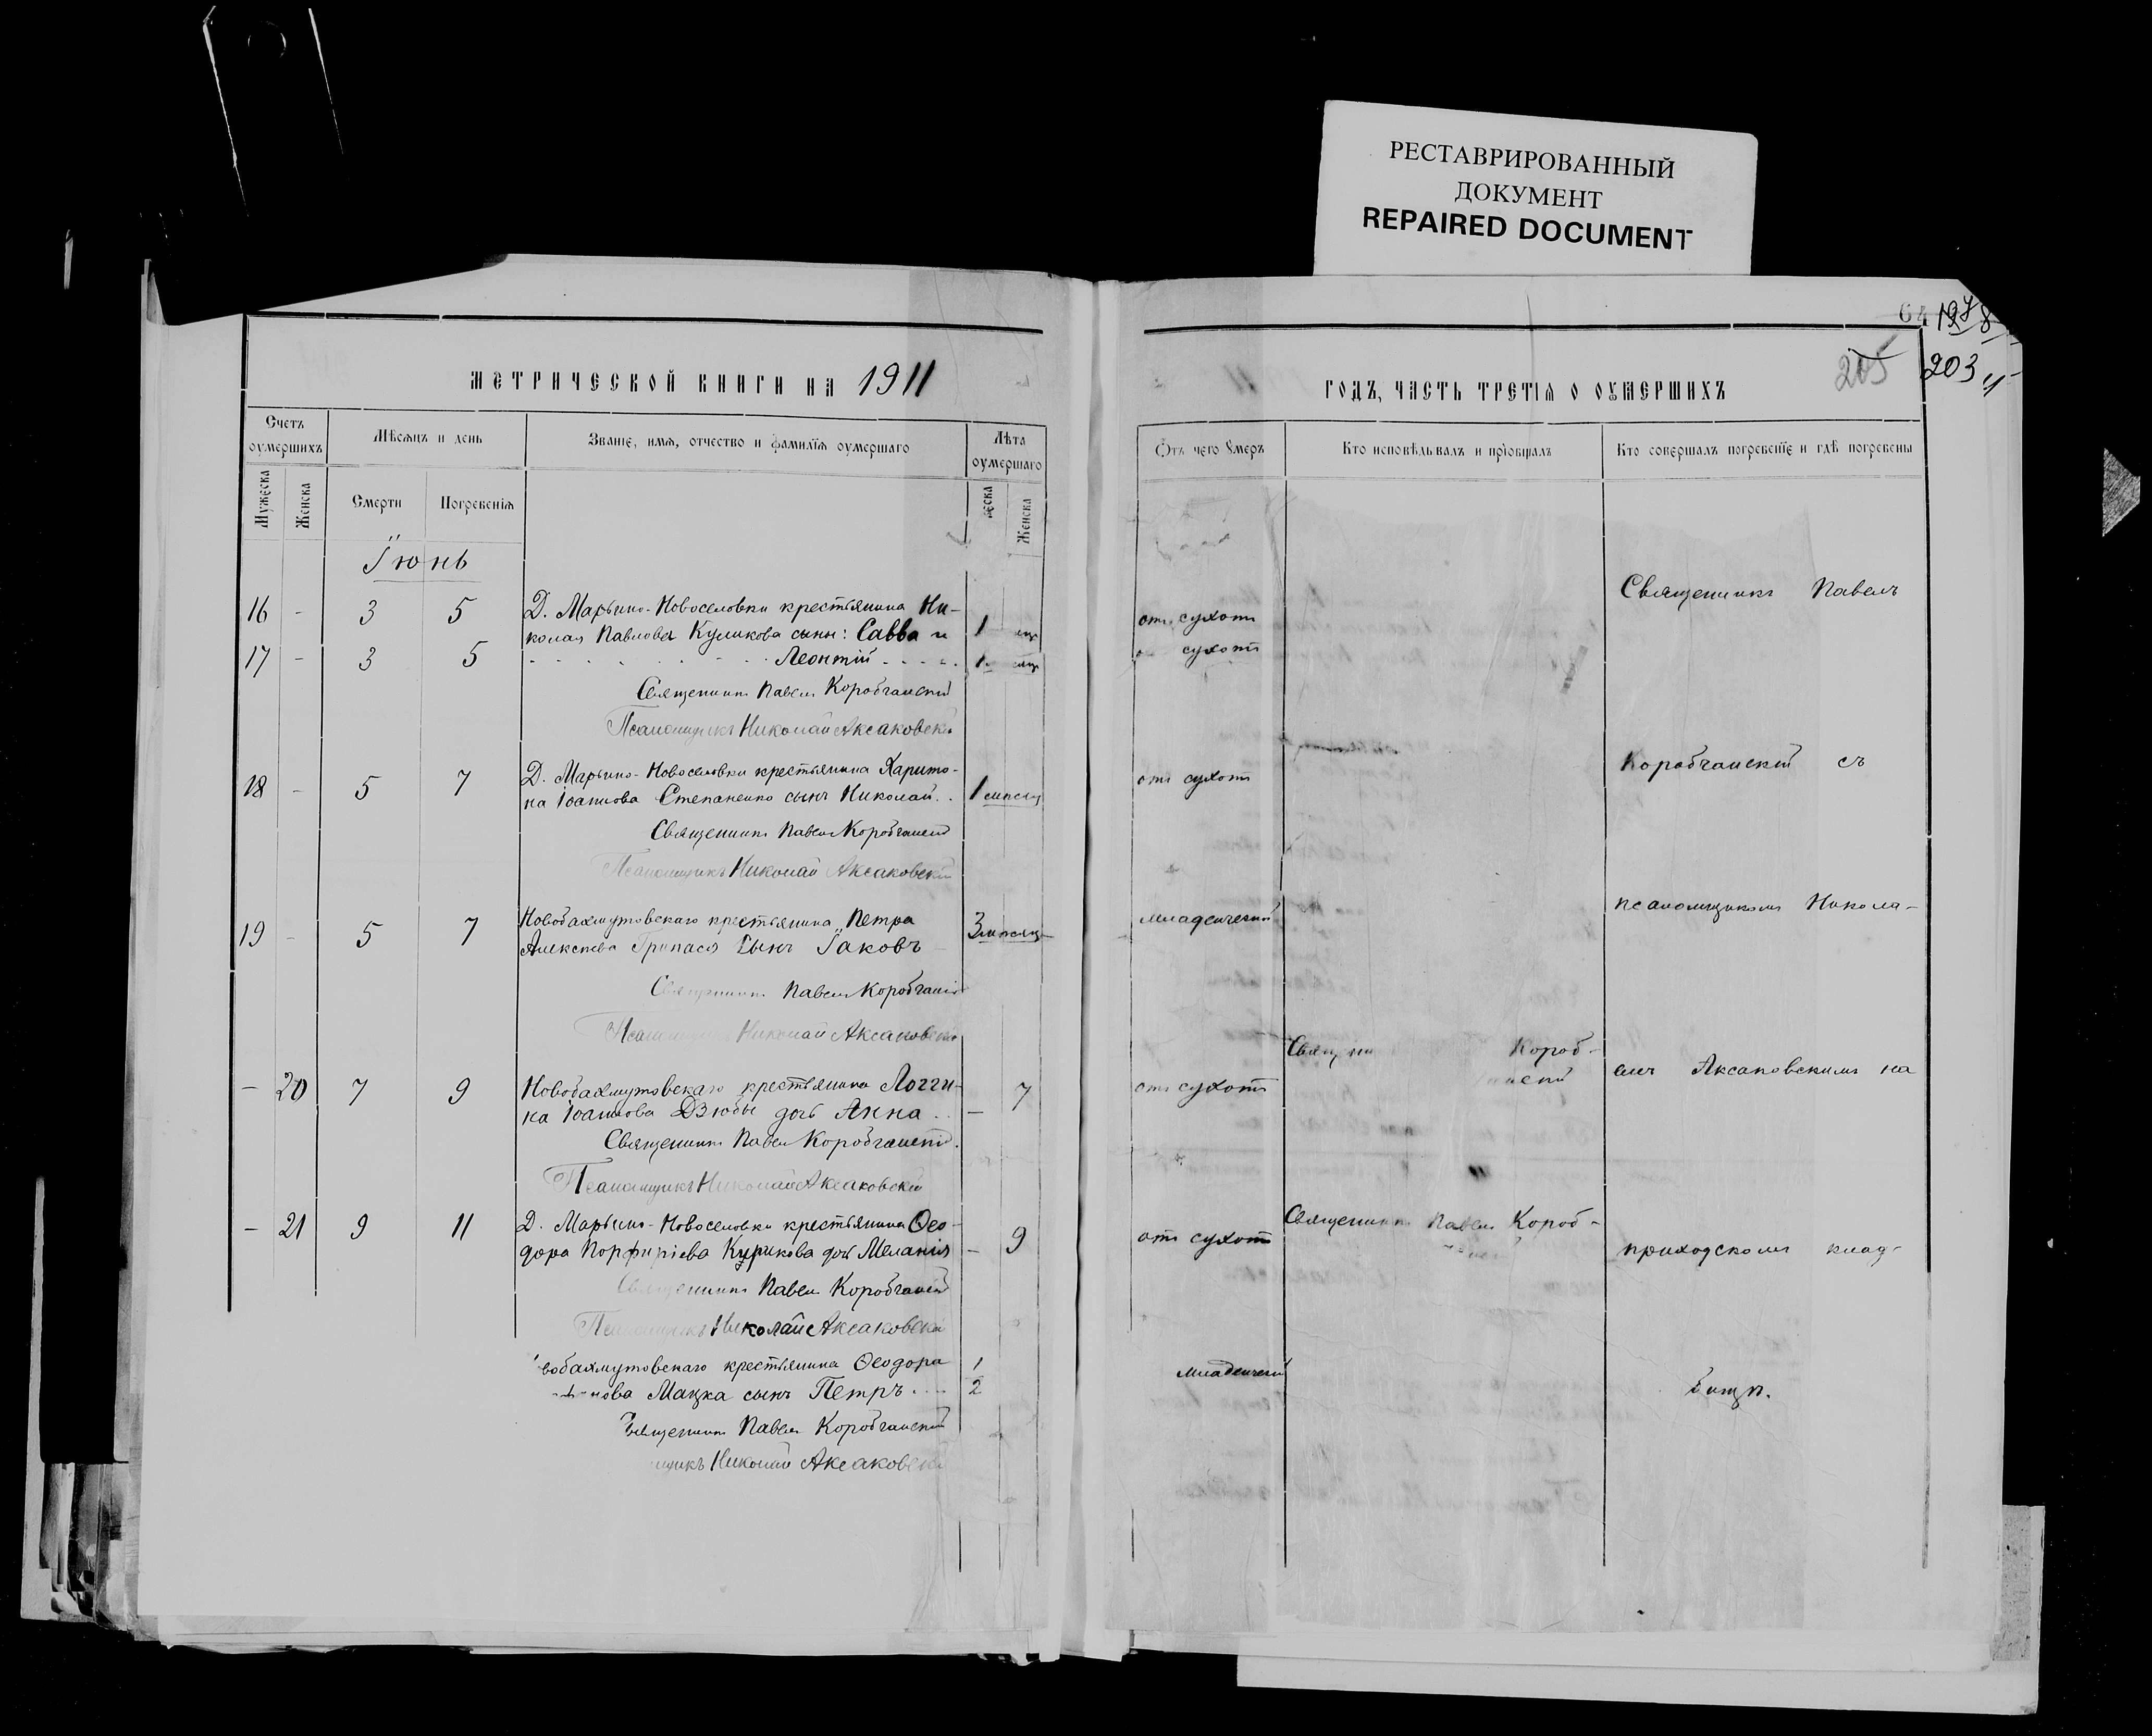 РЕСТАВРИРОВАННЫЙ
ДОКУМЕНТ
REPAIRED DOCUMENT
64 198
205 203
МЕТРИЧЕСКОЙ КНИГИ НА 1911
ГОДЪ, ЧАСТЬ ТРЕТІЯ О ОУМЕРШИХЪ
Счетъ оумершихъ
Мѣсяцъ и день
Званіе, имя, отчество и фамилія оумершаго
Лѣта оумершаго
Отъ чего умеръ
Кто исповѣдывалъ и пріобщалъ
Кто совершалъ погребеніе и гдѣ погребены
Мужеска
Женска
Смерти
Погребенія
Женска
Іюнь
16 - 3 5 Д. Марьино-Новоселовки крестьянина Ни- 1 отъ сухот Священникъ Павелъ
колая Павлова Куликова сыны: Савва и
17 - 3 5 Леонтій 1 сухот
Священникъ Павелъ Коробчанскій
Псаломщикъ Николай Аксаковскій
18 - 5 7 Д. Марьино-Новоселовки крестьянина Харито- отъ сухот Коробчанскій съ
на Іоаннова Степаненко сынъ Николай 1 мѣсяц
Священникъ Павелъ Коробчанскій
Псаломщикъ Николай Аксаковскій
19 - 5 7 Новобахмутовскаго крестьянина Петра 3 мѣсяц младенческ псаломщикомъ Никола-
Алексѣева Припася сынъ Іаковъ
Священникъ Павелъ Коробчанскій
Псаломщикъ Николай Аксаковскій
- 20 7 9 Новобахмутовскаго крестьянина Логги- - 7 отъ сухот Короб- емъ Аксаковскимъ на
на Іоаннова Дзюбы дочь Анна
Священникъ Павелъ Коробчанскій
Псаломщикъ Николай Аксаковскій
- 21 9 11 Д. Марьино-Новоселовки крестьянина Ѳео- - 9 отъ сухот Священникъ Павелъ Короб- приходскомъ клад-
дора Порфиріева Курикова дочь Меланія
Священникъ Павелъ Коробчанскій
Псаломщикъ Николай Аксаковскій
вобахмутовскаго крестьянина Ѳеодора 1/2 младенческ бищѣ.
нова Мацка сынъ Петръ
Священникъ Павелъ Коробчанскій
щикъ Николай Аксаковскій